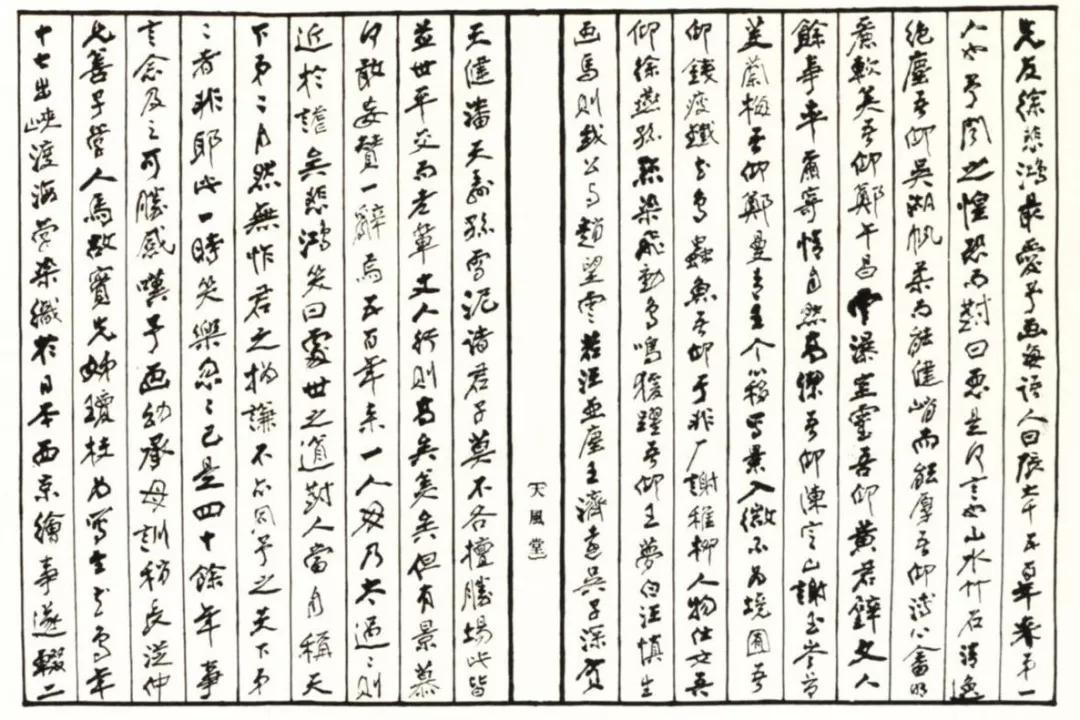 先友徐悲鴻最愛予画每語人曰張大千五百年來第一
人也予聞之惶恐而對曰惡是何言也山水竹石清逸
絕塵吾仰吳湖帆柔而能健峭而能厚吾仰溥心畬明
麗軟美吾仰鄭午昌雲瀑空靈吾仰黃君璧文人
餘事率爾寄情自然高潔吾仰陳定山謝玉岑荷
芰蘭梅吾仰鄭曼青王个簃寫景入微不為境囿吾
仰錢瘦鐵花鳥蟲魚吾仰于非厂謝稚柳人物仕女吾
仰徐燕孫點染飛動鳥鳴猨躍吾仰王夢白汪慎生
画馬則我公与趙望雲若汪亞塵王濟遠吳子深賀
天風堂
天健潘天壽孫雪泥諸君子莫不各擅勝場此皆
並世平交而老輩丈人行則高矣美矣但有景慕
何敢妄贊一辭焉五百年來一人毋乃太過二則
近於謔矣悲鴻笑曰處世之道對人當自稱天
下第二自然無怍君之撝謙不亦同予之天下第
二者非耶此一時笑樂忽二已是四十餘年事
言念及之可勝感嘆予画幼承母訓稍長從仲
兄善子學人馬故實先姊瓊枝為寫生花鳥年
十七出峽渡海學染織於日本西京繪事遂輟二